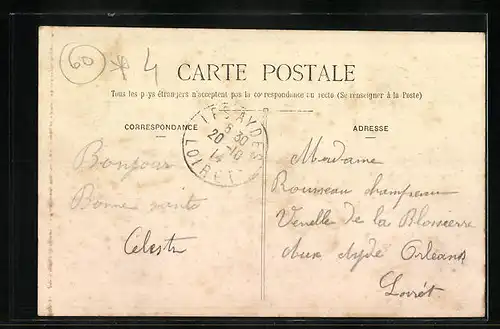 60 * 4
CARTE POSTALE
Tous les pays étrangers n'acceptent pas la correspondance au recto (Se renseigner à la Poste)
CORRESPONDANCE
ADRESSE
LES AYDES
8 30
20-10
14
LOIRET
Bonjour
Bonne santé
Célestin
Madame
Rousseau champeau
Venelle de la Blossière
Aux Ayde Orléans
Loirét